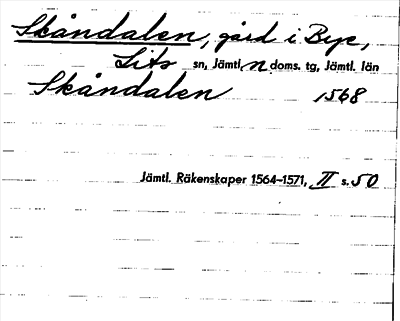 Skåndalen, gård i Bye,
Lits sn, Jämtl. n doms. tg, Jämtl. län
Skåndalen 1568
Jämtl. Räkenskaper 1564–1571, II s. 50